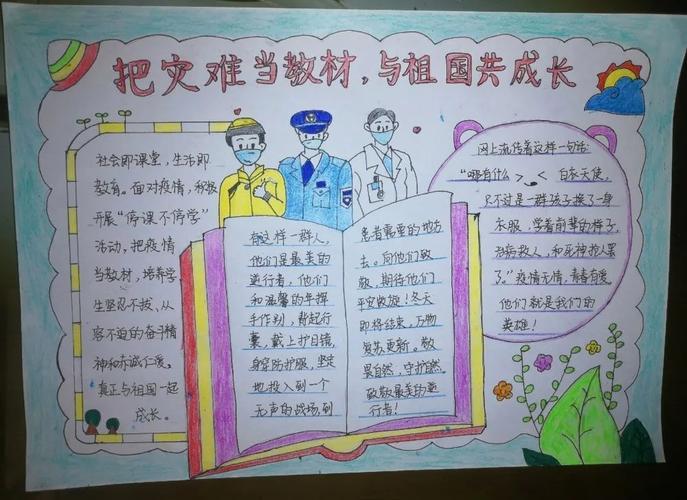 把灾难当教材,与祖国共成长
社会即课堂,生活即
教育。面对疫情,积极
开展“停课不停学”
活动,把疫情
当教材,培养学
生坚忍不拔,从
容不迫的奋斗精
神和赤诚仁爱,
真正与祖国一起
成长。
有这样一群人,
他们是最美的
逆行者,他们
和温馨的年挥
手作别,背起行
囊,戴上护目镜,
身穿防护服,坚定
地投入到一个
无声的战场,到
患者需要的地方
去。向他们致
敬,期待他们
平安凯旋!冬天
即将结束,万物
复苏更新。敬
畏自然,守护然,
致敬最美的逆
行者!
网上流传着这样一句话:
“哪有什么 白衣天使,
只不过是一群孩子换了一身
衣服,学着前辈的样子,
治病救人,和死神抢人罢
了。”疫情无情,青春有爱
他们就是我们的
英雄!